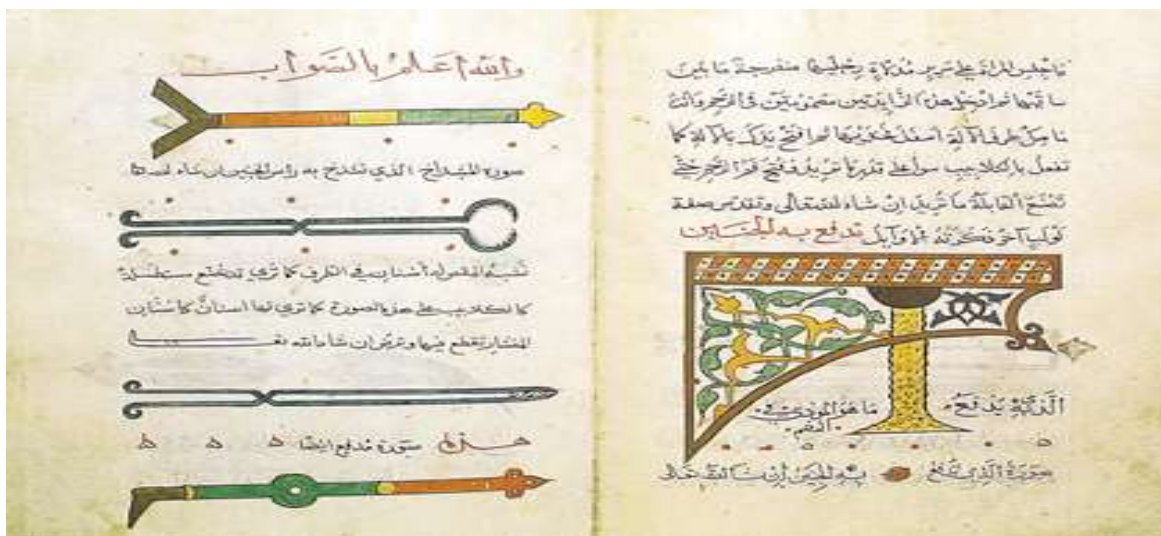 فاجلس المراة على سرير مدلاة رجليها منفرجة ما بين
ساقيها ثم ادخل هذه الزايدتين مضمومتين في الرحم وانت
ماسك طرف الآلة اسفل فخذيها ثم افتح يدك بالآلة كما
تفعل بالكلاليب سوا على قدر ما تريد فتح فم الرحم حتى
تصنع القابلة ما تريد ان شاء الله تعالى صفة
لولب آخر ذكرته الاوايل تدفع به الجنين
الذي يدفع ما هو الموذي في
الفم
صورة الذي تدفع به الجنين ان شا الله تعالى
والله اعلم بالصواب
صورة المشداخ الذي تشدخ به راس الجنين ان شاء الله
تشبه المقص له أسنان في الطرف كما ترى وقد تصنع مستطيلة
كالكلاليب على هذه الصورة كما ترى لها اسنان كاسنان
المنشار يقطع فيها وترض ان شاء الله
هذه صورة مدفع ايضا